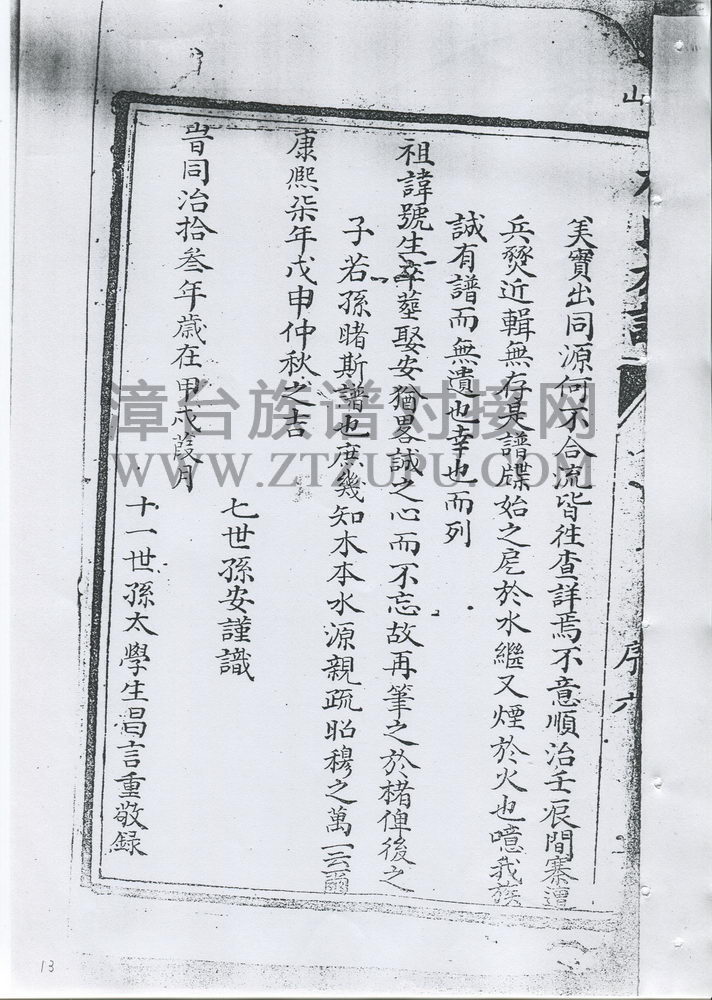 美實出同源何不合流皆往查詳焉不意順治壬辰間寨遭
兵燹近輯無存是譜牒始之戹於水繼又煙於火也噫我族
誠有譜而無遺也幸也而列
祖諱號生卒塟娶安猶畧誠之心而不忘故再筆之於楮俾後之
子若孫睹斯譜也庶幾知木本水源親疏昭穆之萬一云爾
康熙柒年戊申仲秋之吉
七世孫安謹識
旹同治拾叁年歲在甲戌葭月
十一世孫太學生昌言重敬録
序六
山
漳台族谱对接网
WWW.ZTZUPU.COM
13